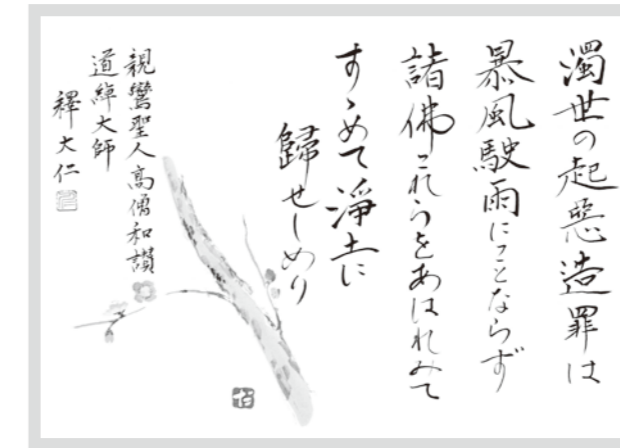 濁世の起惡造罪は
暴風駛雨にことならず
諸佛これらをあはれみて
すゝめて淨土に
歸せしめり
親鸞聖人高僧和讃
道綽大師
釋大仁